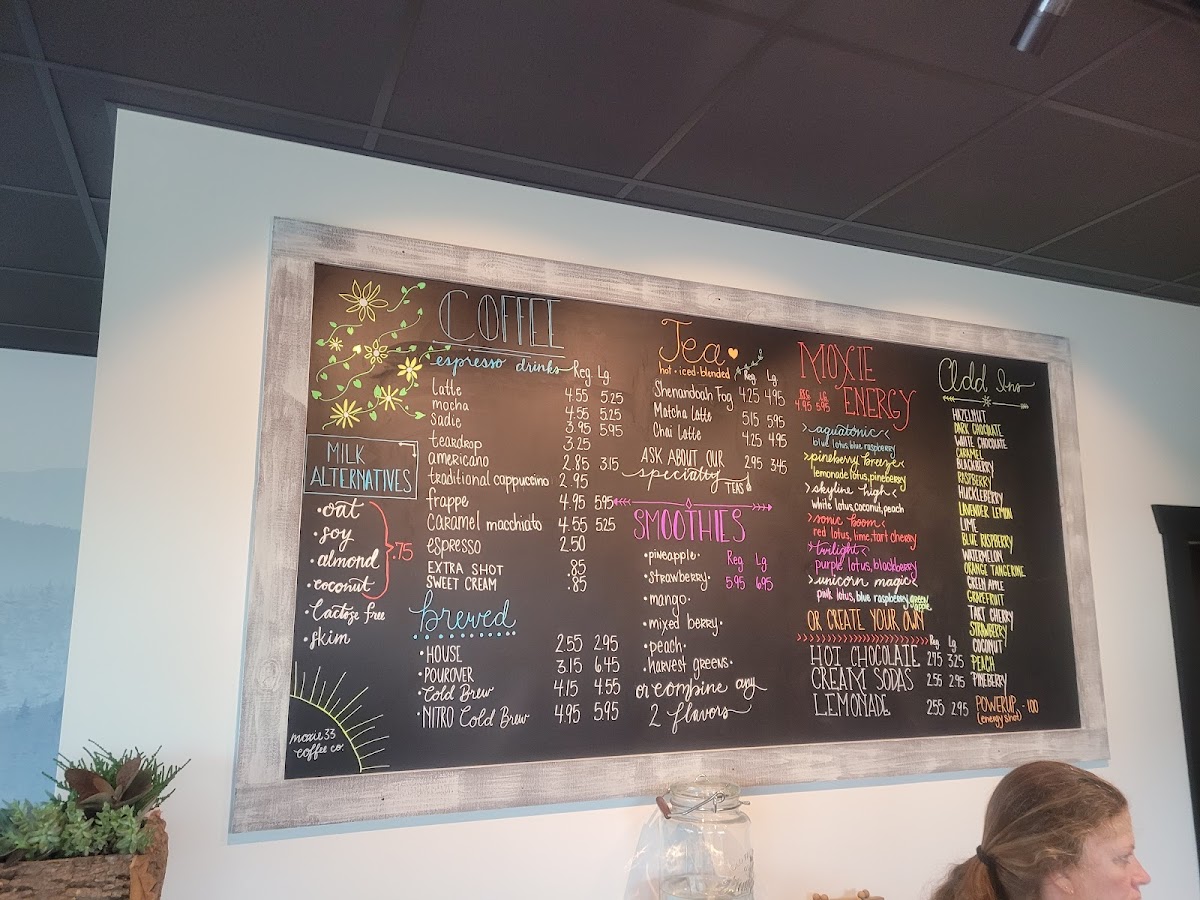 COFFEE
espresso drinks Reg Lg
Latte 4.55 5.25
mocha 4.55 5.25
Sadie 3.95 5.95
teardrop 3.25
americano 2.85 3.15
traditional cappuccino 2.95
frappe 4.95 5.95
Caramel macchiato 4.55 5.25
espresso 2.50
EXTRA SHOT .85
SWEET CREAM .85
brewed
•HOUSE 2.55 2.95
•POUROVER 3.15 6.45
•Cold Brew 4.15 4.55
•NITRO Cold Brew 4.95 5.95
MILK
ALTERNATIVES
•oat
•soy
•almond .75
•coconut
•Lactose free
•skim
moxie 33
coffee co.
Tea
hot•iced•blended Reg Lg
Shenandoah Fog 4.25 4.95
Matcha Latte 5.15 5.95
Chai Latte 4.25 4.95
ASK ABOUT OUR 2.95 3.45
specialty
TEAS
SMOOTHIES
•pineapple• Reg Lg
•strawberry• 5.95 6.95
•mango•
•mixed berry•
•peach•
•harvest greens•
or combine any
2 flavors
MOXIE
REG LG ENERGY
4.95 5.95
>aquatonic<
blue lotus, blue raspberry
>pineberry breeze<
lemonade lotus, pineberry
>skyline high<
white lotus, coconut, peach
>sonic boom<
red lotus, lime, tart cherry
>twilight<
purple lotus, blackberry
>unicorn magic<
pink lotus, blue raspberry, green apple
OR CREATE YOUR OWN
Reg Lg
HOT CHOCOLATE 2.75 3.25
CREAM SODAS 2.55 2.95
LEMONADE 2.55 2.95
Add Ins
HAZELNUT
DARK CHOCOLATE
WHITE CHOCOLATE
CARAMEL
BLACKBERRY
RASPBERRY
HUCKLEBERRY
LAVENDER LEMON
LIME
BLUE RASPBERRY
WATERMELON
ORANGE TANGERINE
GREEN APPLE
GRAPEFRUIT
TART CHERRY
STRAWBERRY
COCONUT
PEACH
PINEBERRY
POWERUP - 1.00
(energy shot)